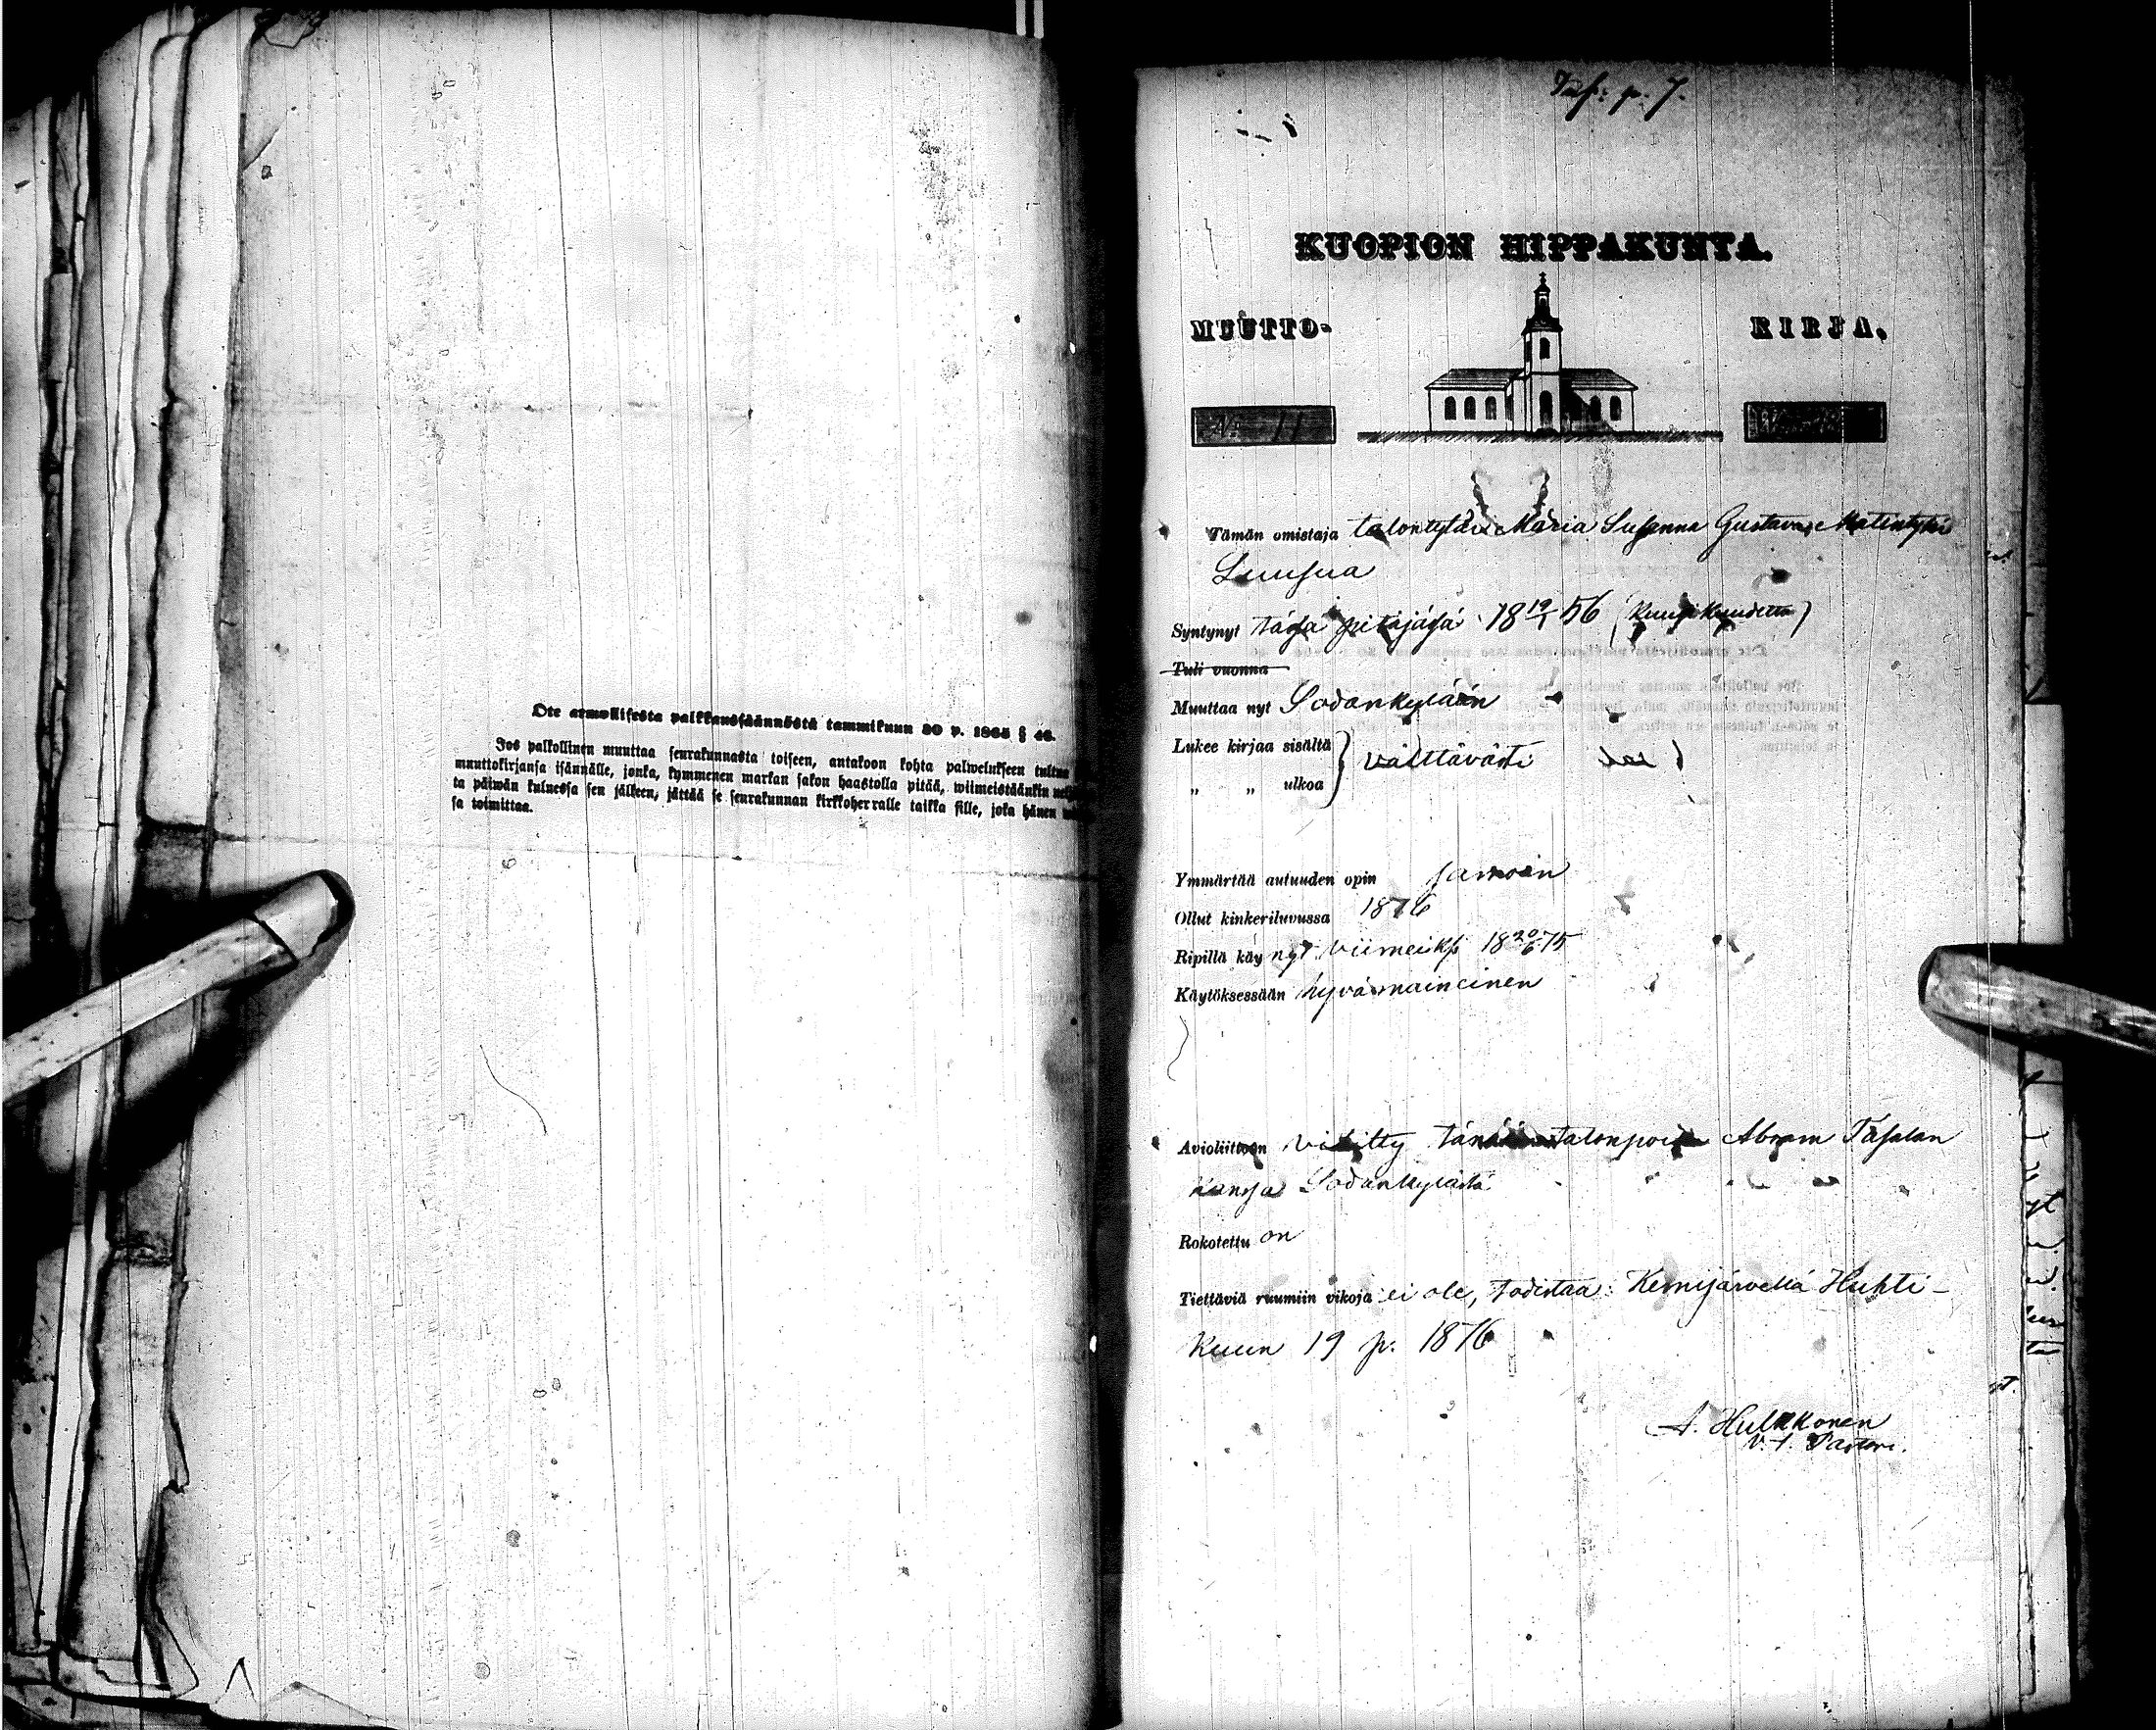 Ote armollisesta palkkaussäännöstä tammikuun 30 p. 1865 § 46.
Jos palkollinen muuttaa seurakunnasta toiseen, antakoon kohta palwelukseen tultua
muuttokirjansa isännälle, jonka, kymmenen markan sakon haastolla pitää, wiimeistäänkin
ta päiwän kuluessa sen jälkeen, jättää se seurakunnan kirkkoherralle taikka sille, joka hänen
sa toimittaa.
p. 7.
KUOPION HIPPAKUNTA.
MUUTTO- KIRJA.
N:o 11
Tämän omistaja talontytär Maria Susanna Gustava Matintytär
Luusua
Syntynyt tässä pitäjässä 18 19/1 56 (kuusikuudetta)
Tuli vuonna
Muuttaa nyt Sodankylään
Lukee kirjaa sisältä } välttävästi
„ „ ulkoa
Ymmärtää autuuden opin samoin
Ollut kinkeriluvussa 1876
Ripillä käynyt viimeiksi 18 20/6 75
Käytöksessään hyvämaineinen
Avioliittoon vihitty tänään talonpoika Abram Tasalan
kanssa Sodankylästä
Rokotettu on
Tiettäviä ruumiin vikoja ei ole, todistaa: Kemijärvellä Huhti-
kuun 19 p. 1876
A. Hulkkonen
V. t. Pastori.